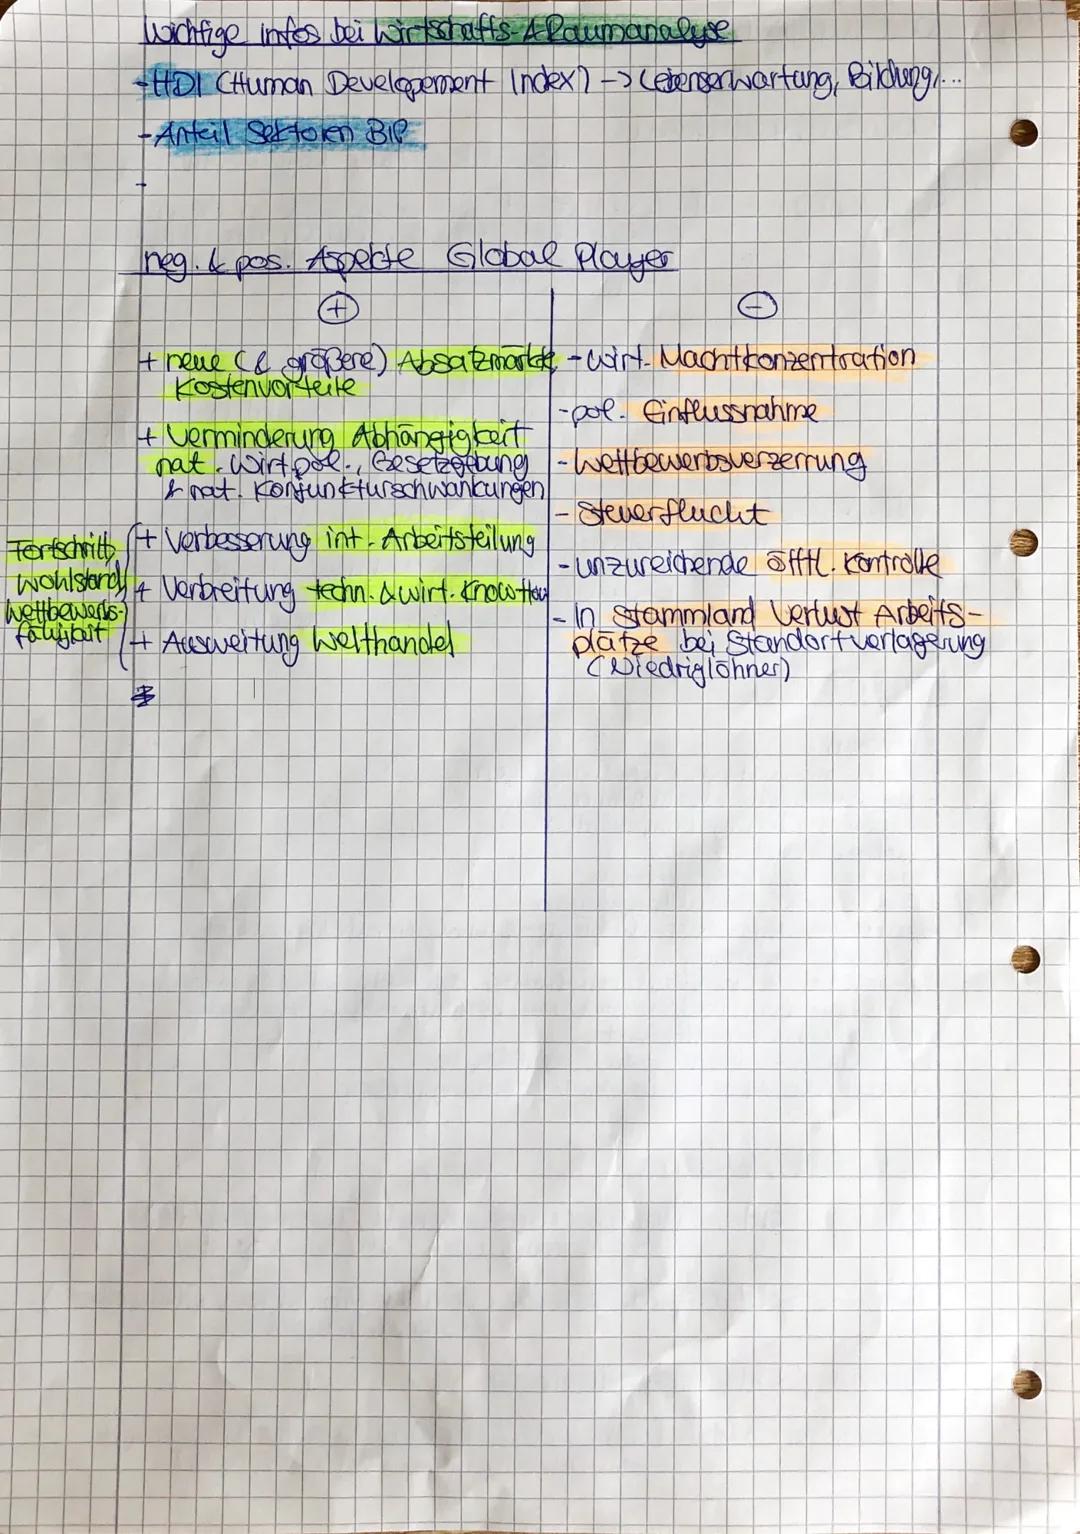 Wichtige Infos bei Wirtschafts- & Raumanalyse
- HDI (Human Developement Index) -> Lebenserwartung, Bildung, ...
- Anteil Sektoren BIP
-
neg. & pos. Aspekte Global Player
+
+ neue (& größere) Absatzmärkte
Kostenvorteile
+ Verminderung Abhängigkeit
nat. wirtpol., Gesetzgebung
& nat. Konjunkturschwankungen
+ Verbesserung int. Arbeitsteilung
+ Verbreitung techn. & wirt. KnowHow
+ Ausweitung Welthandel
Fortschritt,
Wohlstand,
Wettbewerbs-
fähigkeit
-
- wirt. Machtkonzentration
- pol. Einflussnahme
- Wettbewerbsverzerrung
- Steuerflucht
- unzureichende öfftl. Kontrolle
- In Stammland Verlust Arbeits-
plätze bei Standortverlagerung
(Niedriglöhner)